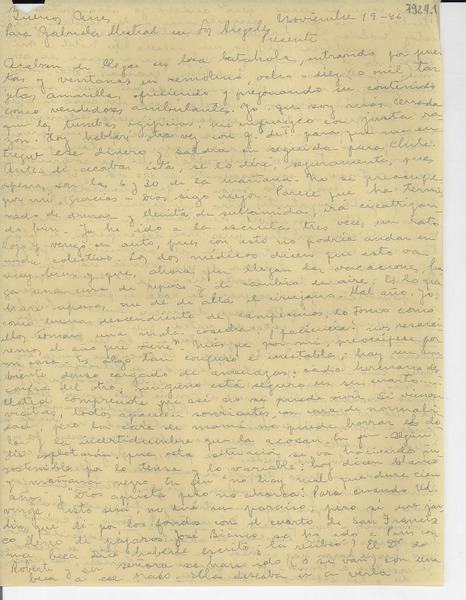 7924.1
Buenos Aires Noviembre 19-46
Para Gabriela Mistral en Los Angeles
Presente
Acaban de llegar en loca batahola, entrando por puer
tas y ventanas en remolino, ocho o diez o mil, tar
jetas amarillas, ofreciendo y pregonando su contenido
como vendedores ambulantes. Yo, que soy más cerrada
que las tumbas egipcias, me enfurezco con justa ra
zón. Hoy hablaré otra vez con para que me en
tregue ese dinero, y saldrá en seguida para Chile.
Antes de acabar esta, se lo diré, seguramente, pues
apenas son las 6 y 30 de la mañana. No se preocupe
por mí, gracias a Dios sigo mejor. Parece que ha termi
nado de drenar y llenita de sulfamida, irá cicatrizan
do bien. Ya he ido a la escuela tres veces, un rato.
Voy y vengo en auto, pues con esto no podría andar en
colectivo. Los dos médicos dicen que esto va
muy bien y que, ahora que llegan las vacaciones, ha
ga una cura de reposo y de cambio de aire. Es lo que
haré apenas me dé de alta el cirujano. Mal año. Yo,
como buena descendiente de campesinos, lo tomo como
ellos toman una mala cosecha: ¡paciencia! nos resarci
remos el año que viene". Más que por mí, preocúpese por
mi casa. Es algo tan confuso e inestable; hay un am
biente denso cargado de amenazas: cada hermana des
confía del otro, ninguno está seguro en su cuarto...
Usted comprende que así no se puede vivir. Si vienen
visitas, todos aparecen sonrientes, con cara de normali
dad, pero la cara de mamá no puede borrar el do
lor y la incertidumbre que la acosan. En fin. Algún
día explotarán, pues esta situación se va haciendo in
sostenible por lo tensa y lo variable: hoy dicen blanco
y mañana negro. En fin "no hay mal que dure cien
años" y "Dios aprieta pero no ahorca". Para cuando Ud.
venga, esto será, no diré un paraíso, pero sí un jar
dín, que dé por los fondos con el cuarto de San Francis
co lleno de pájaros. José Bianco se ha ido a París con
una beca. Dice haberle escrito ¿la recibió? El Dr. de
Roberto y su señora se han ido (o se van) con una
beca a ese país. Ellos deseaban ir a verla